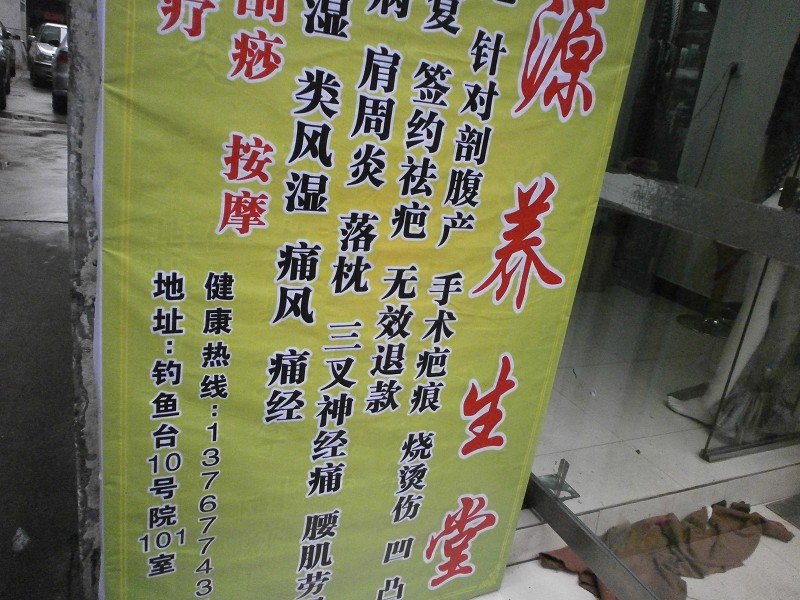 源养生堂
针对剖腹产 手术疤痕 烧烫伤 凹凸
复 签约祛疤 无效退款
病 肩周炎 落枕 三叉神经痛 腰肌劳
湿 类风湿 痛风 痛经
刮痧 按摩
疗
健康热线:13767743
地址:钓鱼台10号院101室